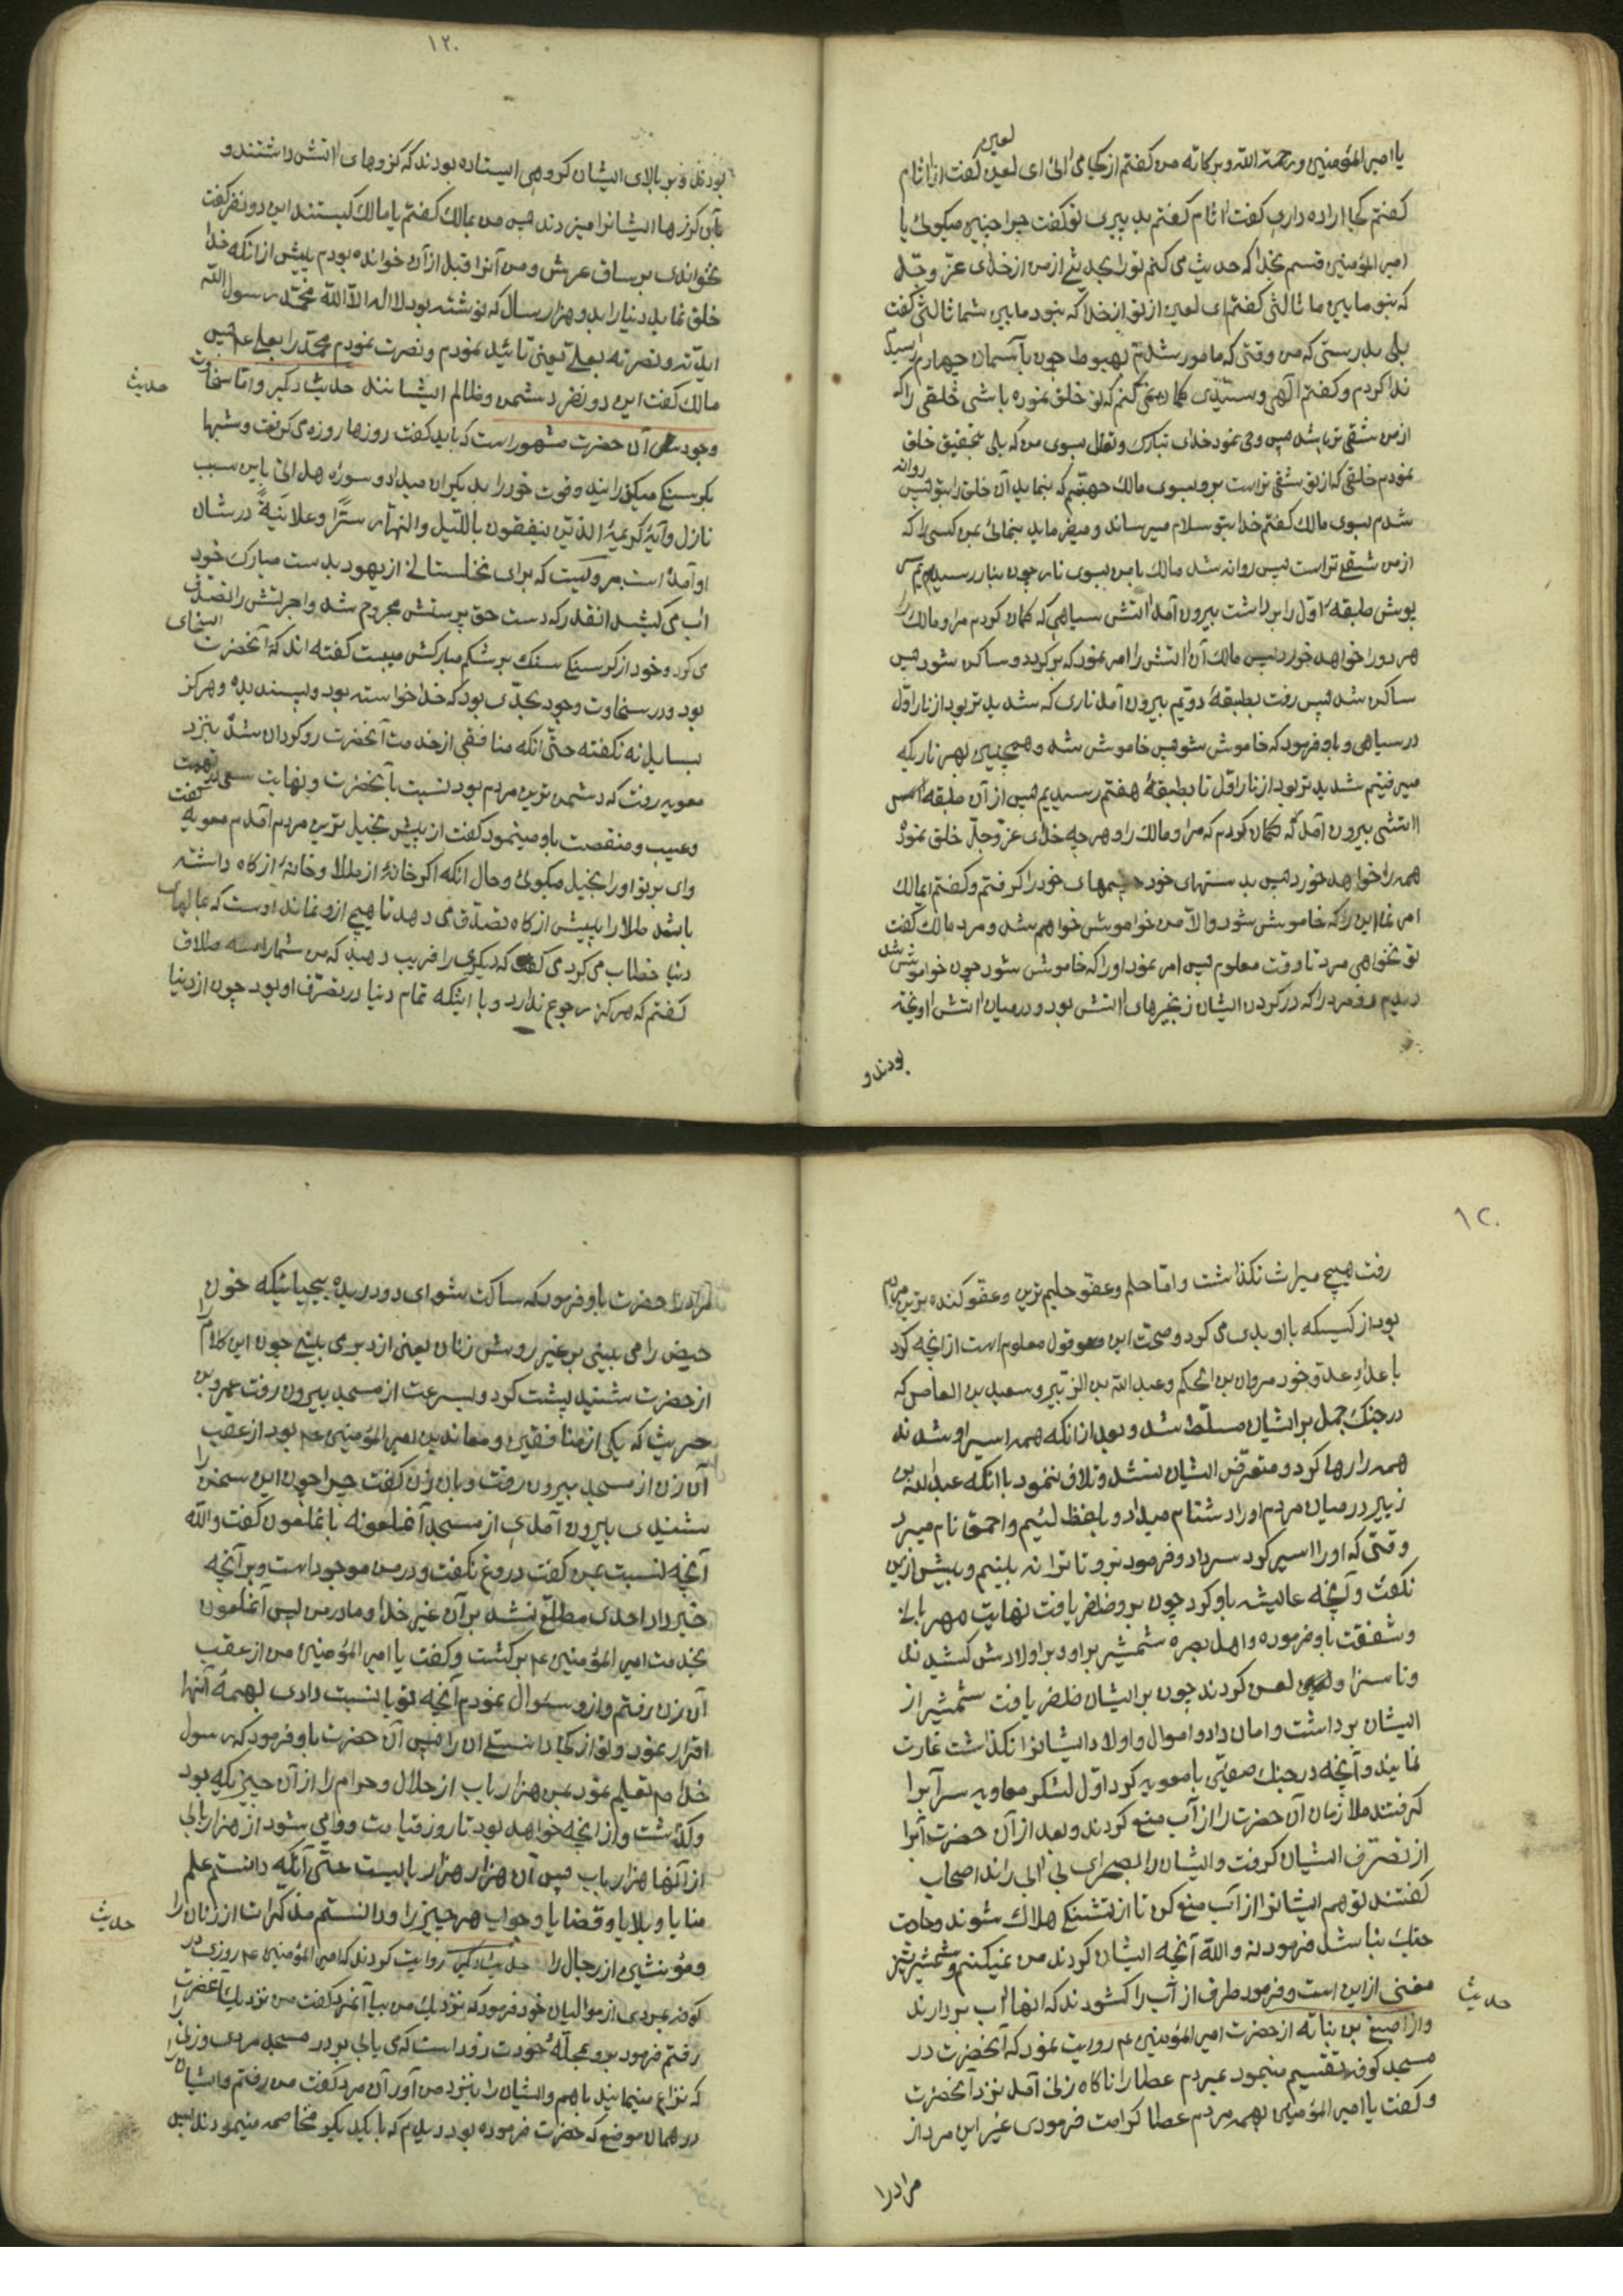 یا امیر المؤمنین و رحمة الله و برکاته من کفتم از کجا می ائی ای لعین کفت از اثام
لعین
کفتم کجا اراده داری کفت اثام کفتم بد پیری تو کفت چرا چنین میکوئی یا
امیر المؤمنین قسم بخدا که حدیث می کنم تو را بحدیثی از من از خدای عزّ و جلّ
که نبود مابین ما ثالثی کفتم ای لعین از تو از خدا که نبود مابین شما ثالثی کفت
بلی بدرستی که من وقتی که مامور شدم بهبوط چون بآسمان چهارم رسیدم
ندا کردم و کفتم الهی و سیّدی کمان نمی کنم که تو خلق نموده باشی خلقی را که
از من شقی تر باشد پس وحی نمود خدای تبارک و تعالی بسوی من که بلی بتحقیق خلق
نمودم خلقی که از تو شقی تر است برو بسوی مالک جهنّم که بنماید آن خلق را بتو پس روانه
شدم بسوی مالک کفتم خدا بتو سلام میرساند و میفرماید بنمائی بمن کسی را که
از من شقی تر است پس روانه شد مالک با من بسوی نار چون بنار رسیدیم سر
پوش طبقه اوّل را برداشت بیرون آمد اتش سیاهی که کمان کردم مرا و مالک را
هر دو را خواهد خورد پس مالک آن اتش را امر نمود که برکردد و ساکن شود پس
ساکن شد پس رفت بطبقهٔ دویّم بیرون آمد ناری که شدید تر بود از نار اوّل
در سیاهی و باو فرمود که خاموش شو پس خاموش شد و همچنین بهر ناریکه
میرفتیم شدید تر بود از نار اوّل تا بطبقهٔ هفتم رسیدیم پس از آن طبقه
اتشی بیرون آمد که کمان کردم که مرا و مالک را و هر چه خدای عزّ و جلّ خلق نموده
همه را خواهد خورد پس بدستهای خود چشمهای خود را کرفتم و کفتم ایمالک
امر نما این را که خاموش شود و الّا من خواموش خواهم شد و مرد مالک کفت
تو نخواهی مرد تا وقت معلوم پس امر نمود او را که خاموش شود چون خواموش شد
دیدم دو مرد را که در کردن ایشان زنجیرهای اتش بود و در میان اتش اویخته
بودند و
۱۲۰
بودند و بر بالای ایشان کروهی ایستاده بودند که کرزهای اتش داشتند و
بآن کرزها ایشانرا میزدند پس من بمالک کفتم یا مالک کیستند این دو نفر کفت
نخواندی بر ساق عرش و من آنرا قبل از آن خوانده بودم پیش از آنکه خدا
خلق نماید دنیا را بدو هزار سال که نوشته بود لا اله الّا الله محمّد رسول الله
ایدّته و نصرته بعلی یعنی تائید نمودم و نصرت نمودم محمّد را بعلی عم پس
مالک کفت این دو نفر دشمن و ظالم ایشانند حدیث دکبر و امّا سخاوت
حدیث
وجود آن حضرت مشهور است که باید کفت روزها روزه می کرفت و شبها
بکرسنکی میکذرانید و قوت خود را بدیکران میداد و سوره هل اتی باین سبب
نازل و آیهٔ کریمهٔ الّذین ینفقون باللّیل و النهار سرًّا و علانیةً در شان
او آمده است مرویست که برای نخلستانی از یهود بدست مبارک خود
اب می کشید انقدر که دست حق پرستش مجروح شد و اجرتش را تصدّق
می کرد و خود از کرسنکی سنک بر شکم مبارکش میبست کفته اند که آنحضرت اسخای
بود و در سخاوت وجود بحدّی بود که خدا خواسته بود و پسندیده و هرکز
بسایل نه نکفته حتّی انکه منافقی از خدمت آنحضرت روکردان شده بنزد
معویه رفت که دشمن ترین مردم بود نسبت بآنحضرت و بنهایت سعی تهمت
و عیب و منقصت باو مینمود کفت از پیش بخیل ترین مردم آمدم معویه کفت
وای بر تو او را بخیل میکوئی و حال انکه اکر خانهٔ از طلا و خانهٔ از کاه داشته
باشد طلا را پیش از کاه تصدّق می دهد تا هیچ ازو نماند اوست که بمالهای
دنیا خطاب می کرد می کفت که دیکری را فریب دهید که من شما را سه طلاق
کفتم که هرکز رجوع ندارد و با اینکه تمام دنیا در تصرّف او بود چون از دنیا
۱۲۰
رفت هیچ میراث نکذاشت و امّا حلم و عفو حلیم ترین و عفو کننده ترین مردم
بود از کسیکه با او بدی می کرد و صحّت این قول معلوم است از آنچه کرد
با عدای عدوّ خود مروان بن الحکم و عبد الله بن الزّبیر و سعید بن العاص که
در جنک جمل بر ایشان مسلّط شد و بعد از انکه همه اسیر او شدند
همه را رها کرد و متعرّض ایشان نشد و تلافی ننمود با انکه عبد الله بن
زبیر در میان مردم او را دشنام میداد و بلفظ لئیم و احمق نام میبرد
وقتی که او را اسیر کرد سر داد و فرمود برو تا ترا نه بینم و بیش ازین
نکفت و آنچه عایشه باو کرد چون برو ظفر یافت نهایت مهربانی
و شفقت باو فرموده و اهل بصره شمشیر بر او و بر اولادش کشیدند
و ناسزا و لعن کردند چون بر ایشان ظفر یافت شمشیر از
ایشان برداشت و امان داد و اموال و اولاد ایشانرا نکذاشت غارت
نمایند و آنچه در جنک صفّین با معویه کرد اوّل لشکر معاویه سر آبرا
کرفتند ملازمان آن حضرت را از آب منع کردند و بعد از آن حضرت آبرا
از تصرّف ایشان کرفت و ایشان را بصحرای بی آبی راند اصحاب
کفتند تو هم ایشانرا از آب منع کن تا از تشنکی هلاک شوند و حاجت
جنک نباشد فرمود نه و الله آنچه ایشان کردند من نمیکنم و شمشیر تیز
مغنی از این است و فرمود طرف از آب را کشودند که انها آب بردارند
حدیث
و از اصبغ بن نباته از حضرت امیر المؤمنین عم روایت نمود که آنحضرت در
مسجد کوفه تقسیم مینمود بمردم عطا را ناکاه زنی آمد نزد آنحضرت
و کفت یا امیر المؤمنین بهمه مردم عطا کرامت فرمودی غیر این مرد از
مراد را
مراد را حضرت باو فرمود که ساکت شو ای دور دیده بیحیائیکه خون
حیض را می بینی بر غیر روش زنان یعنی از دبر می بینی چون این کلام را
از حضرت شنید پشت کرد و بسرعت از مسجد بیرون رفت عمرو بن
حریث که یکی از منافقین و معاندین امیر المؤمنین عم بود از عقب
آن زن از مسجد بیرون رفت و بان زن کفت چرا چون این سخن را
شنیدی بیرون آمدی از مسجد آنملعونه بانملعون کفت والله
آنچه نسبت بمن کفت دروغ نکفت و در من موجود است و بر آنچه
خبر داد احدی مطلّع نشد بر آن غیر خدا و مادر من پس آنملعون
بخدمت امیر المؤمنین عم برکشت و کفت یا امیر المؤمنین من از عقب
آن زن رفتم و ازو سئوال نمودم آنچه تو با نسبت دادی بهمهٔ آنها
اقرار نمود و تو از کجا دانستی ان را پس آن حضرت باو فرمود که رسول
خدا صم تعلیم نمود بمن هزار باب از حلال و حرام را از آن چیزیکه بود
و کذشت و از آنچه خواهد بود تا روز قیامت و وا می شود از هزار بابی
از آنها هزار باب پس آن هزار هزار بابیست حتّی آنکه دانستم علم
منایا و بلایا و قضایا و جواب هر چیز را و دانستم مذکرات از زنان را
و مؤنثین از رجال را حدیث دیکر روایت کردند که امیر المؤمنین عم روزی در
حدیث
کوفه بمردی از موالیان خود فرمود که نزدیک من بیا آنمرد کفت من نزدیک آنحضرت
رفتم فرمود برو بمحلّهٔ خودت زود است که می یابی بر در مسجد مردی و زنی را
که نزاع مینمایند باهم و ایشان را بنزد من آور آن مرد کفت من رفتم و ایشان را
در همان موضع که حضرت فرموده بود دیدم که با یکدیکر مخاصمه مینمودند پس